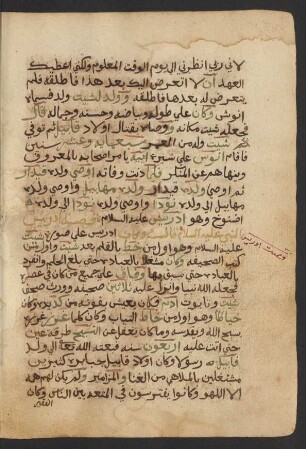 لان ربي انظرني الى يوم الوقت المعلوم ولكني اعطيك
العهد ان لا اتعرض اليك بعد هذا فاطلقه فلم
يتعرض له بعدها فاطلقه وولد لشيث ولد فسماه
انوش وكان على طوله وبياضه وحسنه وجماله قال
فجعله شيث مكانه ووصاه بقتال اولاد قابيل ثم توفي
شيث وله من العمر سبعمايه وعشر سنين
فاقام انوش على سيرة ابيه يامر اصحابه بالمعروف
وينهاهم عن المنكر فلما دنت وفاته اوصى ولده
ثم اوصى ولده قيدار ولده مهليل واوصى ولده
مهليل الى ولده يودا واوصى ولده يودا الى ولده
اخنوخ وهو ادريس عليه السلام
نبي الله عليه السلام ادريس على صورة شيث
عليه السلام وهو اول من خط بالقلم بعد شيث واول من
كتب الصحيفه وكان مشغلا بالعباده حتى بلغ الحلم وانفرد
بالعباده حتى سبق بها وفاق على جميع من كان في عصره
فجعله الله نبيا وانزل عليه ثلاثين صحيفه وورث صحف
شيث وتابوت ادم وكان يعيش بقوته من يده وكان
خياطا وهو اول من خاط الثياب وكان كلما غرز غرزة
سبح الله ويقدسه وما كان يغفل عن التسبيح طرفة عين
حتى اتت عليه اربعون سنه فبعثه الله تعالى الى ولد
قابيل رسولا وكان اولاد قابيل جبابره كثيرين
مشتغلين بالملاهي من الغنا والمزامير ولم يكن لهم همه
الا اللهو وكانوا يفترسون في المتعدين الناس وكان
قصة ادريس